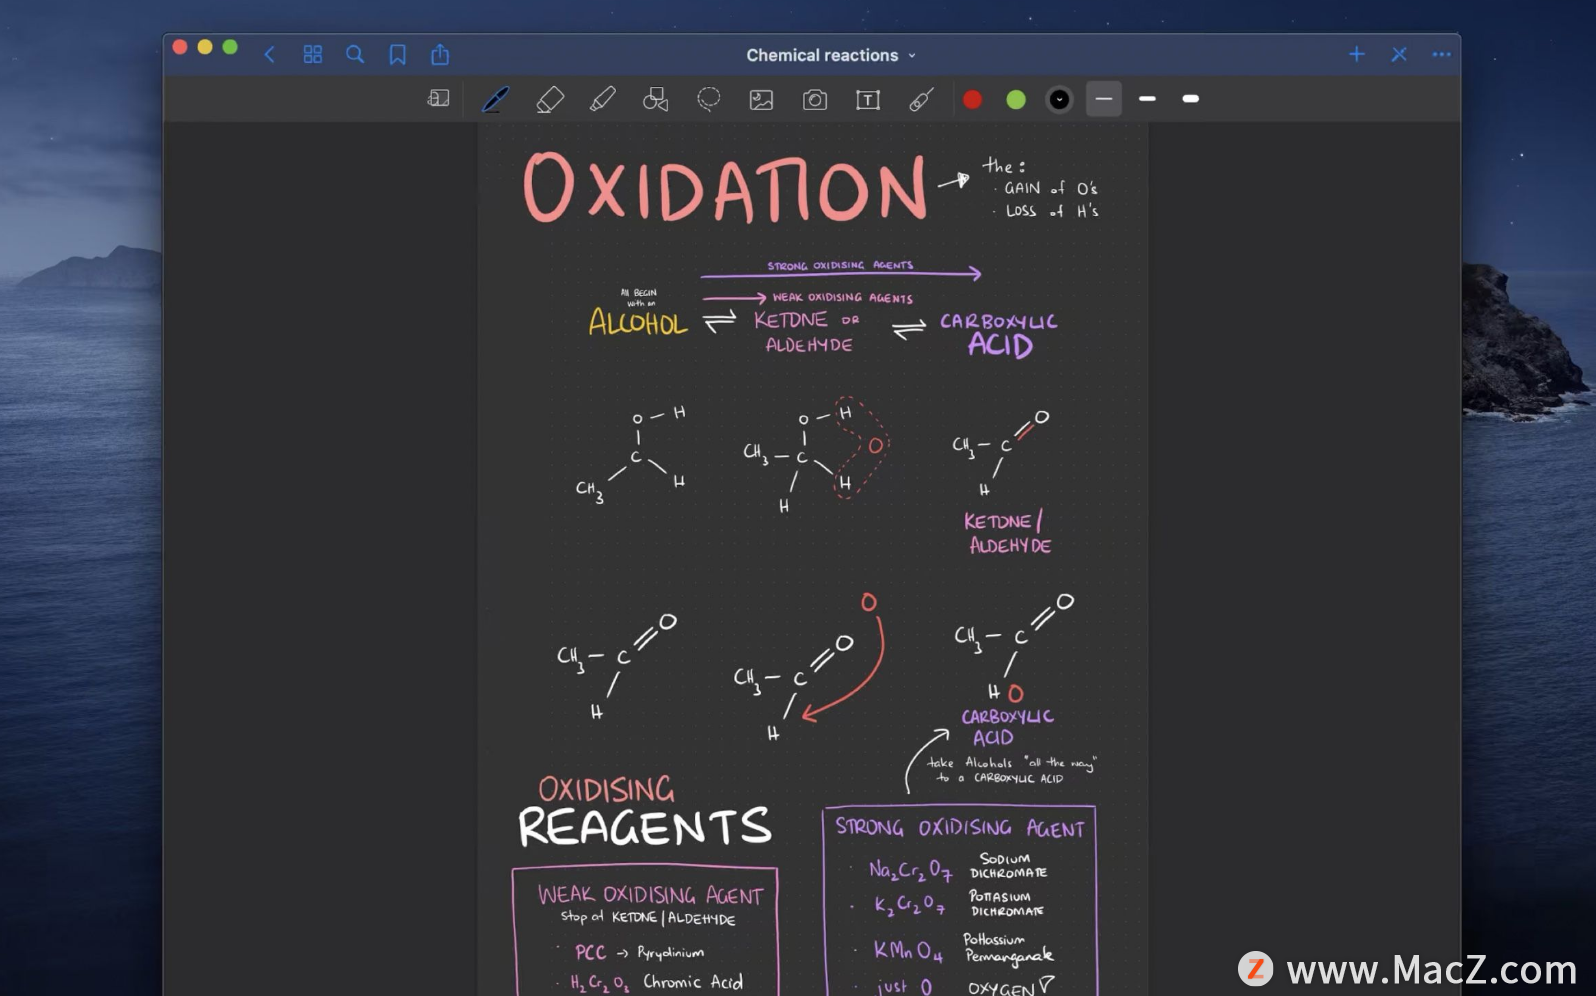 Chemical reactions
T
OXIDATION
the:
· GAIN of O's
· LOSS of H's
STRONG OXIDISING AGENTS
All BEGIN
with an
WEAK OXIDISING AGENTS
ALCOHOL ⇌ KETONE OR ⇌ CARBOXYLIC
ALDEHYDE ACID
O — H
C
CH3 H
O — H
O
CH3 — C
H
H
O
CH3 — C
H
KETONE/
ALDEHYDE
O
CH3 — C
H
O
O
CH3 — C
H
O
CH3 — C
H O
CARBOXYLIC
ACID
take Alcohols "all the way"
to a CARBOXYLIC ACID
OXIDISING
REAGENTS
WEAK OXIDISING AGENT
Stop at KETONE/ALDEHYDE
· PCC → Pyrydinium
· H2Cr2O3 Chromic Acid
STRONG OXIDISING AGENT
· Na2Cr2O7 SODIUM
DICHROMATE
· K2Cr2O7 POTTASIUM
DICHROMATE
· KMnO4 Pottassium
Permanganate
· just O OXYGEN
Z www.MacZ.com